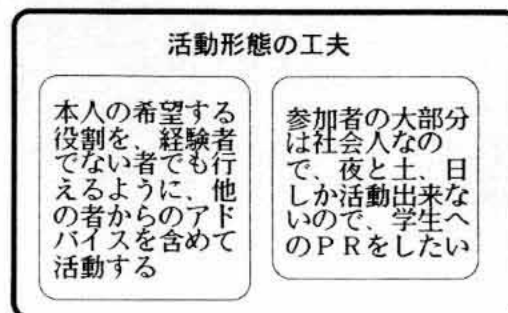 活動形態の工夫
本人の希望する
役割を、経験者
でない者でも行
えるように、他
の者からのアド
バイスを含めて
活動する
参加者の大部分
は社会人なの
で、夜と土、日
しか活動出来な
いので、学生へ
のＰＲをしたい